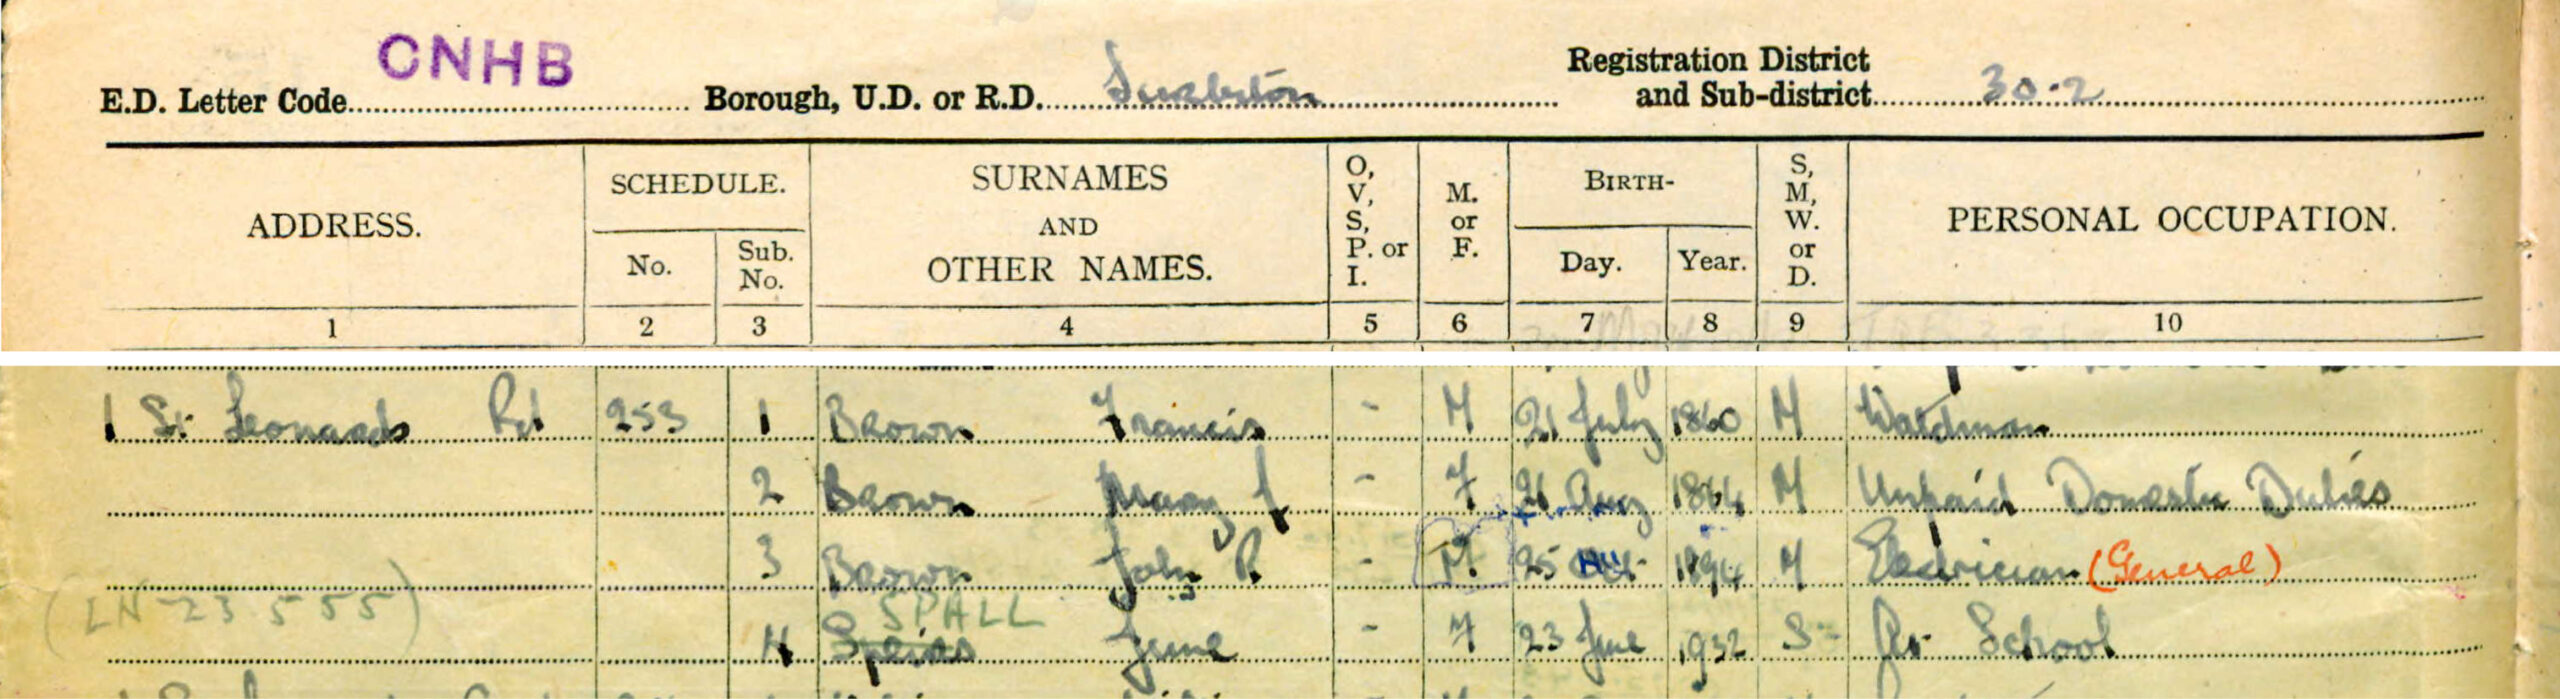 CNHB
E.D. Letter Code Borough, U.D. or R.D. Surbiton Registration District and Sub-district 30.2
ADDRESS. SCHEDULE. No. Sub. No. SURNAMES AND OTHER NAMES. O, V, S, P. or I. M. or F. BIRTH- Day. Year. S, M, W. or D. PERSONAL OCCUPATION.
1 2 3 4 5 6 7 8 9 10
1 St Leonards Rd 253 1 Brown Francis - M 21 July 1860 M
2 Brown Mary J - F 21 Aug 1864 M Unpaid Domestic Duties
3 Brown John R - M 25 1894 M Electrician (General)
(LN 23 5 55) SPALL
4 Speirs June - F 23 June 1932 S At School